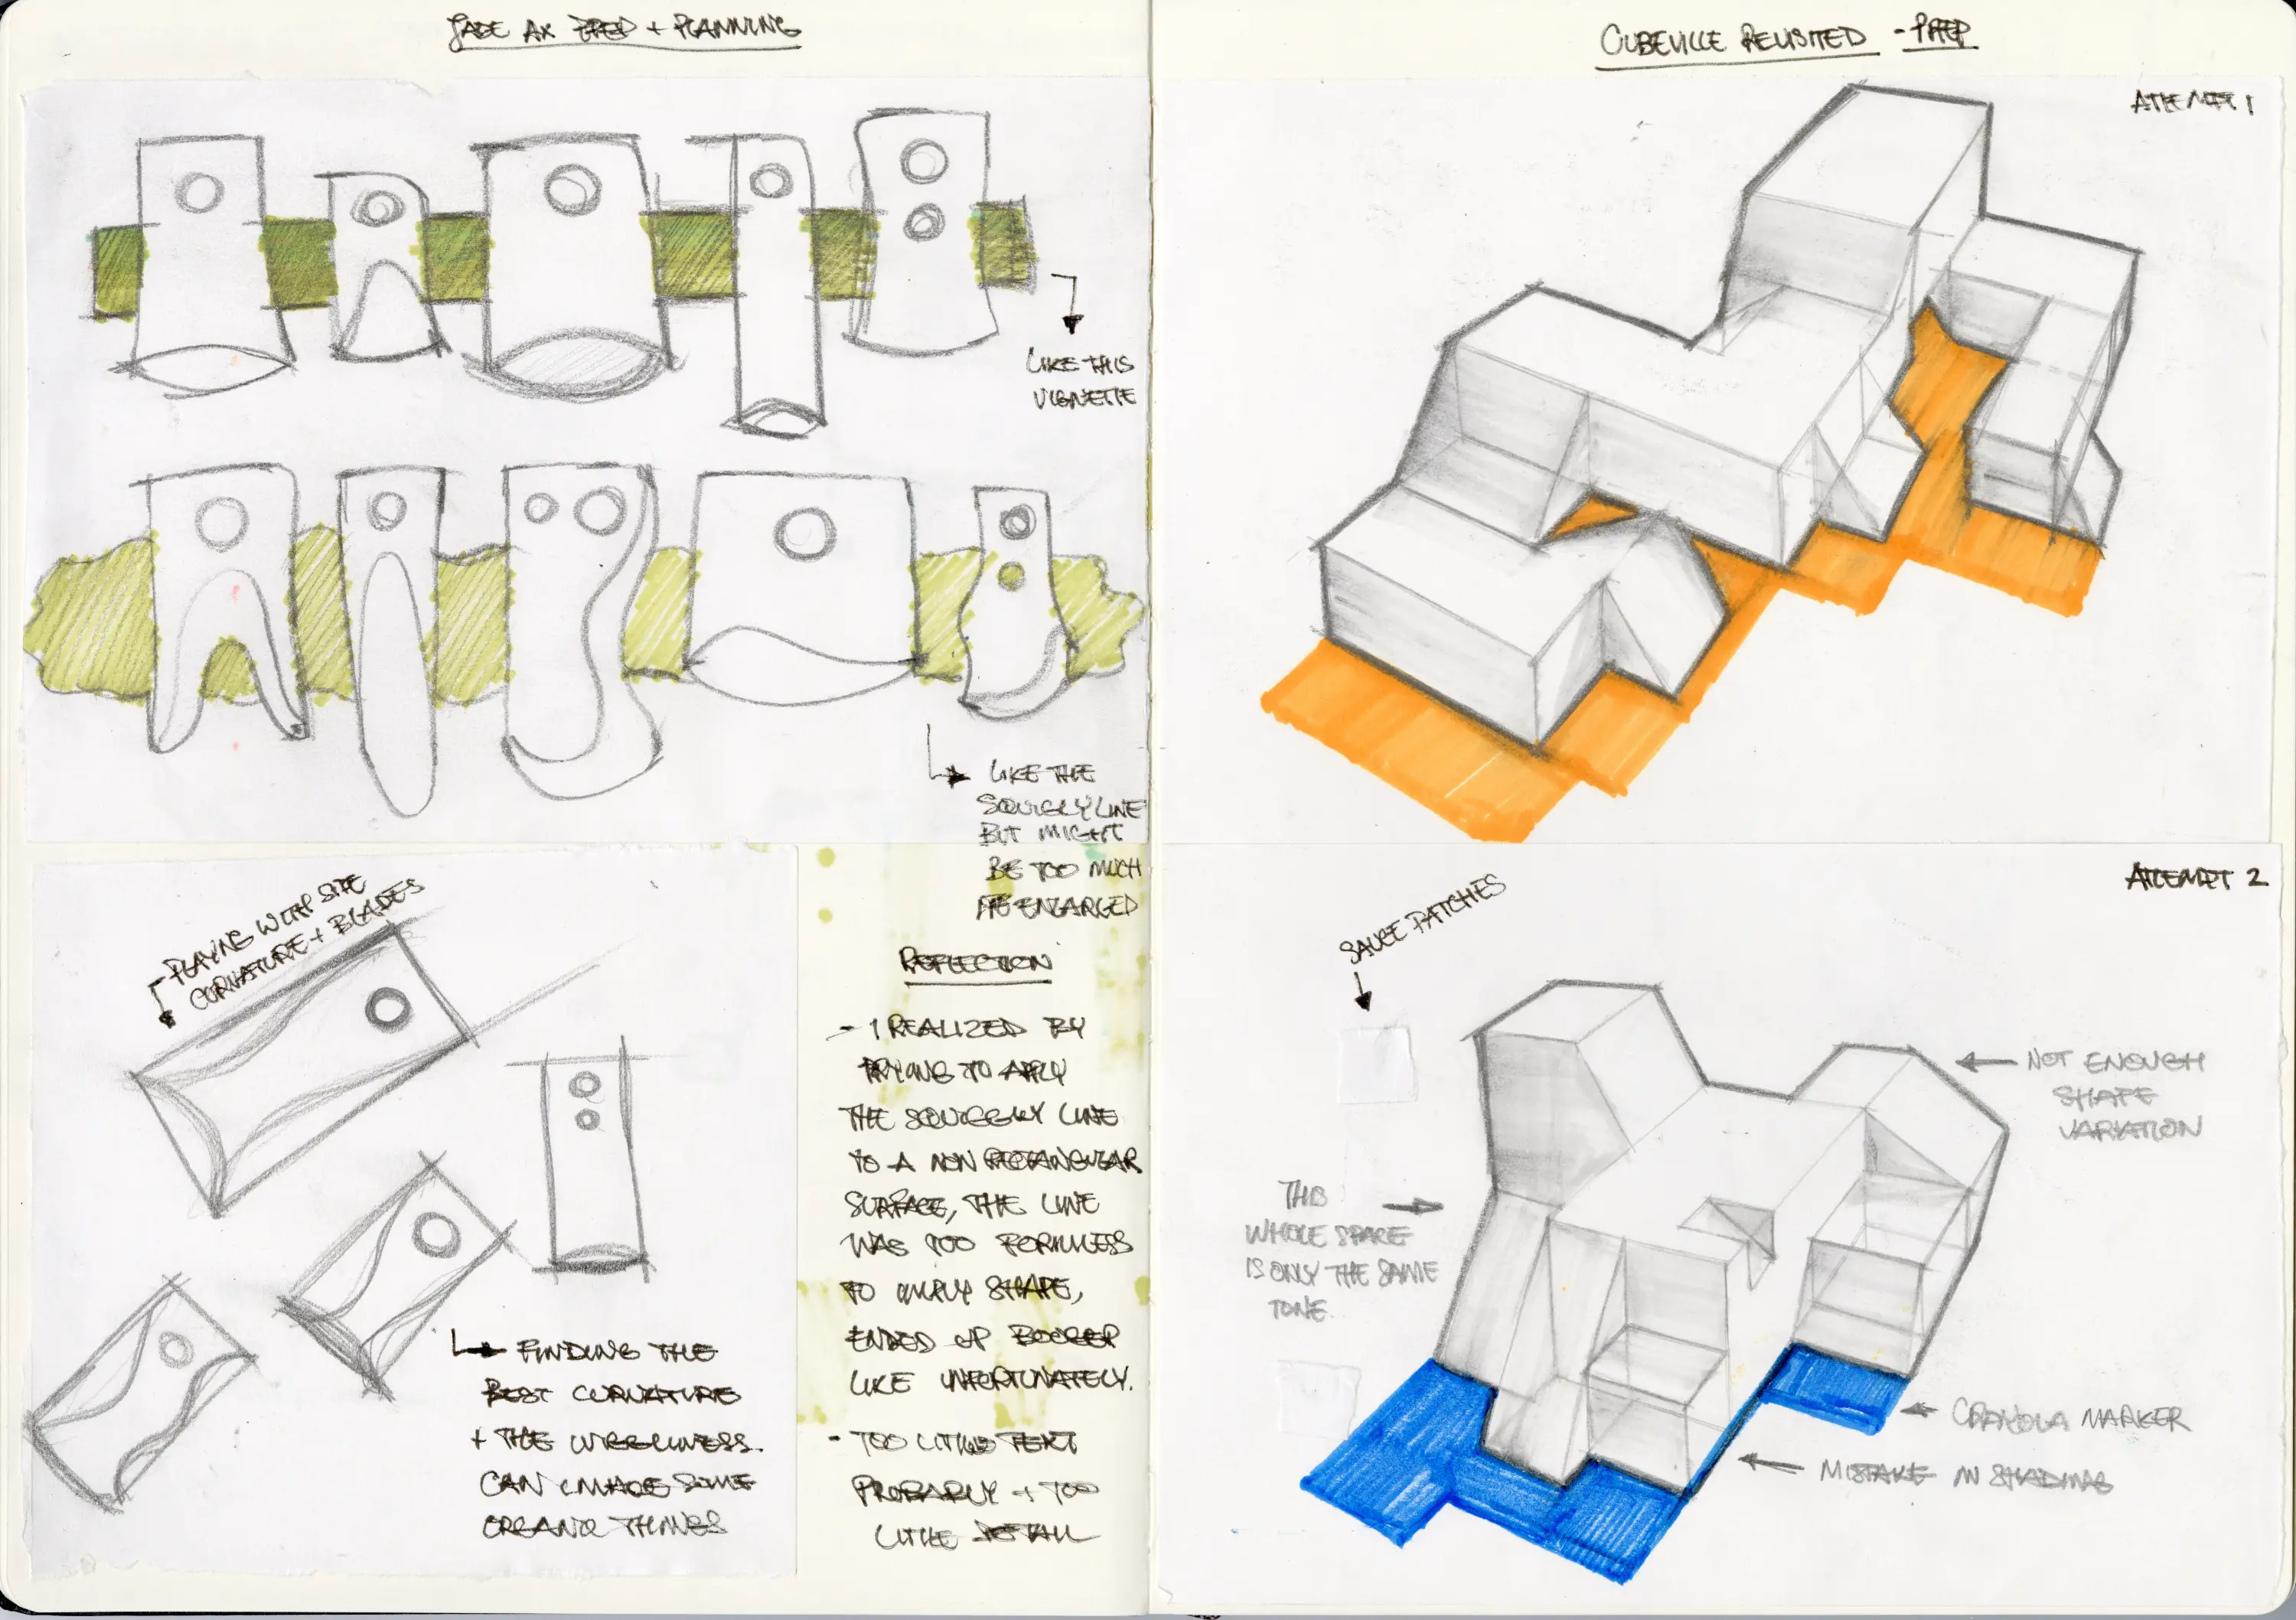 JADE AX PREP + PLANNING
LIKE THIS
VIGNETTE
LIKE THE
SQUIGLY LINE
BUT MIGHT
BE TOO MUCH
ENLARGED
PLAYING WITH SITE
CURVATURE + BLADES
FINDING THE
BEST CURVATURE
+ THE WIGGLINESS.
CAN IMAGE SOME
ORGANIC THINGS
REFLECTION
- I REALIZED BY
TRYING TO APPLY
THE SQUIGGLY LINE
TO A NON RECTANGULAR
SURFACE, THE LINE
WAS TOO FORMLESS
TO IMPLY SHAPE,
ENDED UP BOOGER
LIKE UNFORTUNATELY.
- TOO LITTLE TEXT
PROBABLY + TOO
LITTLE DETAIL
CUBEVILLE REVISITED - PREP
ATTEMPT 1
ATTEMPT 2
SAUCE PATCHES
NOT ENOUGH
SHAPE
VARIATION
THIS
WHOLE SPACE
IS ONLY THE SAME
TONE.
CRAYOLA MARKER
MISTAKE IN SHADING